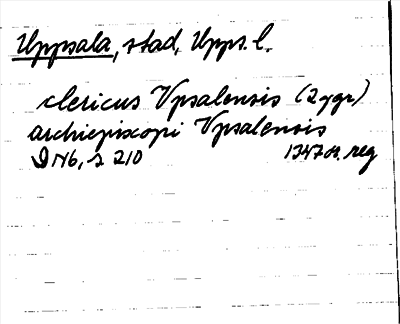 Uppsala, stad, Upps. l.
clericus Vpsalensis (2 ggr)
archiepiscopi Vpsalensis
DN6, s 210 1347 or. reg